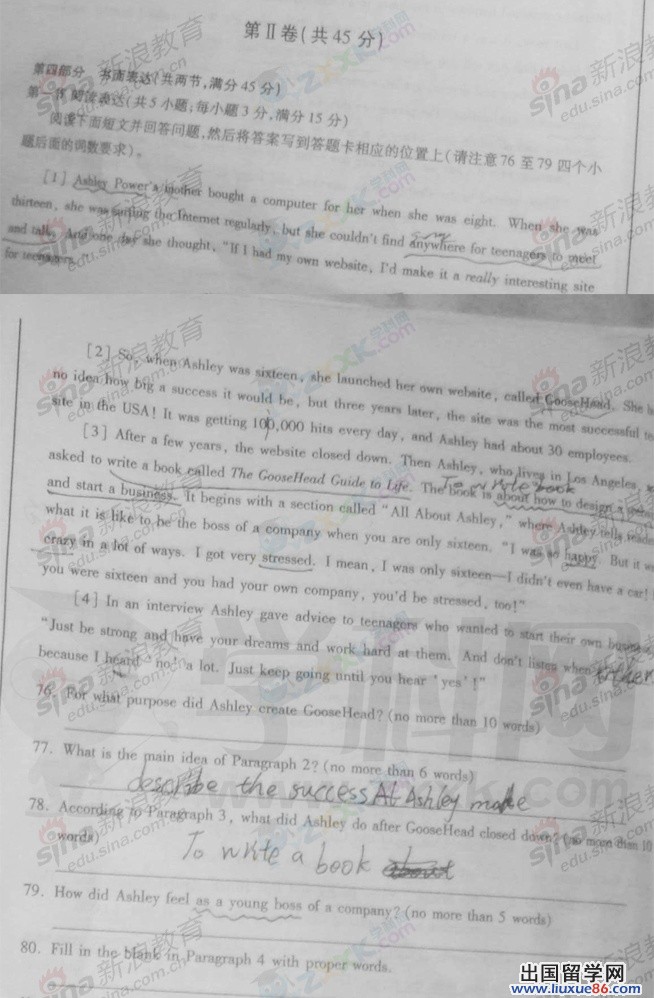 第Ⅱ卷(共45分)
第四部分 书面表达(共两节,满分45分)
第一节 阅读表达(共5小题;每小题3分,满分15分)
阅读下面短文并回答问题,然后将答案写到答题卡相应的位置上(请注意76至79四个小
题后面的词数要求)。
[1] Ashley Power's mother bought a computer for her when she was eight. When she was
thirteen, she was surfing the Internet regularly, but she couldn't find anywhere for teenagers to meet
and talk. And one day she thought, "If I had my own website, I'd make it a really interesting site
for teenagers."
[2] So, when Ashley was sixteen, she launched her own website, called GooseHead. She
no idea how big a success it would be, but three years later, the site was the most successful
site in the USA! It was getting 100,000 hits every day, and Ashley had about 30 employees.
[3] After a few years, the website closed down. Then Ashley, who lives in Los Angeles,
To write book
asked to write a book called The GooseHead Guide to Life. The book is about how to design a
and start a business. It begins with a section called "All About Ashley," where Ashley tells
what it is like to be the boss of a company when you are only sixteen. "I was so happy. But it
crazy in a lot of ways. I got very stressed. I mean, I was only sixteen—I didn't even have a car!
you were sixteen and you had your own company, you'd be stressed, too!"
[4] In an interview Ashley gave advice to teenagers who wanted to start their own
"Just be strong and have your dreams and work hard at them. And don't listen when
because I heard 'no' a lot. Just keep going until you hear 'yes'!"
76. For what purpose did Ashley create GooseHead? (no more than 10 words)
77. What is the main idea of Paragraph 2? (no more than 6 words)
describe the success Ashley made
78. According to Paragraph 3, what did Ashley do after GooseHead closed down? (no more than 10
words)
To write a book
79. How did Ashley feel as a young boss of a company? (no more than 5 words)
80. Fill in the blank in Paragraph 4 with proper words.
sina 新浪教育
edu.sina.com
学科网
ZXXK.com
出国留学网
www.liuxue86.com